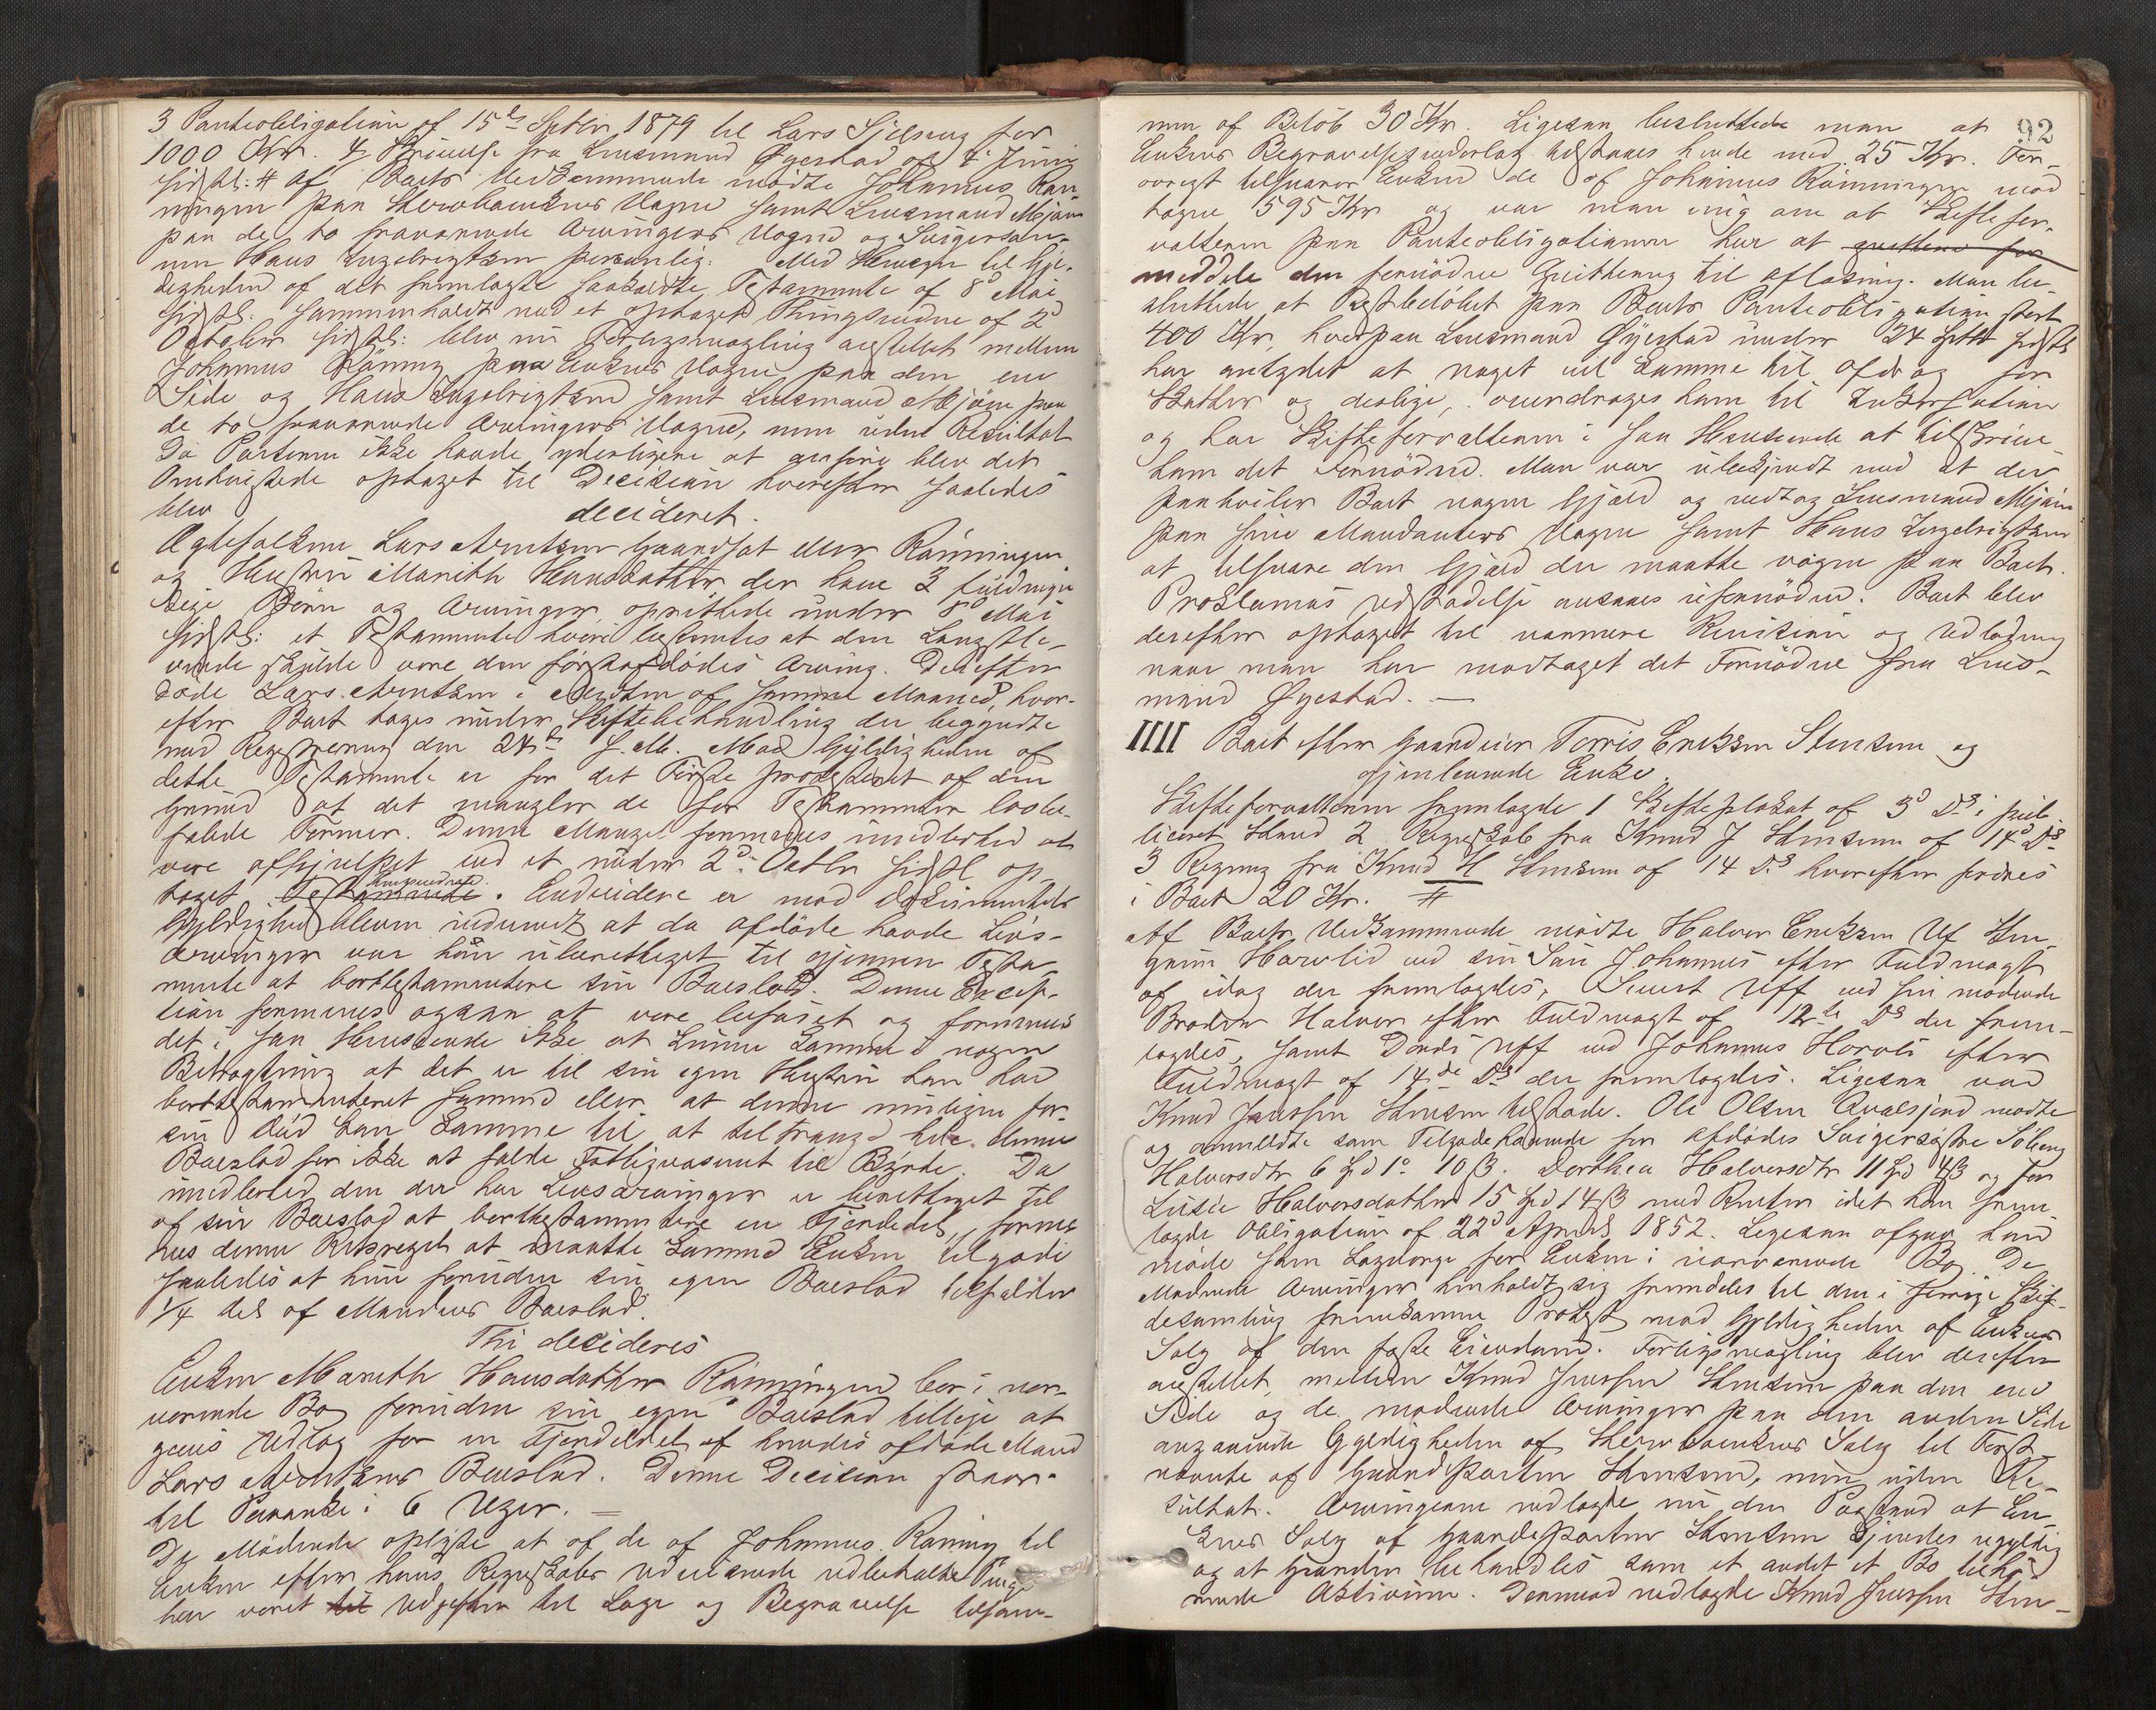 3 Panteobligation af 15de Septbr 1879 til Lars Sjelseng for
1000 Kr. 4 Skrivelse fra Lensmand Øyestad af 4 Juni
sidstl: # Af Boets Vedkommende mødte Johannes Røn
ningen paa Sterbboenkens Vegne samt Lensmand Mjøen
paa de to fraværende Arvingers Vegne og Svigersøn-
nen Hans Ingebrigtsen personlig. Med Hensyn til Gyl-
digheden af det fremlagte saakaldte Testamente af 8de Mai
sidstl: sammenholdt med et optaget Thingsvidne af 2d
October sidstl: blev nu Forligsmægling anstillet mellem
Johannes Rønning paa Enkens Vegne paa den ene
Side og Hans Ingebrigtsen samt Lensmand Mjøen paa
de to fraværende Arvingers Vegne, men uden Resultat
Da Parterne ikke havde yderligere at anføre blev det
Omtvistede optaget til Decision hvorefter saaledes
blev
decideret.
Ægtefolkene Lars Arntsen Gaardsat eller Rønningen
og Hustru Marith Hansdatter der have 3 fuldmyn
dige Børn og Arvinger, oprettede under 8 Mai
sidstl: et Testamente hvori bestemtes at den Længstle-
vende skulde være den førstafdødes Arving. Derefter
døde Lars Arntsen i Midten af samme Maaned, hvor-
efter Boet toges under Skiftebehandling der begyndte
med Registrering den 24de s. M. Mod Gyldigheden af
dette Testamente er for det Første protesteret af den
Grund at det mangler de for Testamenter lovbe-
falede Former. Denne Mangel formenes imidlertid at
være afhjulpet ved et under 2d Octbr sidstl op-
taget Thingsvidne. Endvidere er mod Dokumentets
Gyldighed bleven indvendt at da afdøde havde Livs-
Arvinger var han uberettiget til gjennem Testa-
mente at borttestamentere sin Boeslod. Denne Excep-
tion formenes ogsaa at være beføiet og formenes
det i saa Henseende ikke at kunne komme i nogen
Betragtning at det er til sin egen Hustru han har
borttestamenteret samme eller at denne muligens for
sin Død kan komme til at tiltrænge hele denne
Boeslod for ikke at falde Fattigvæsenet til Byrde. Da
imidlertid den der har Livsarvinger er berettiget til
af sin Boeslod at borttestamentere en Fjerdedel, forme
nes denne Retsregel at maatte komme Enken tilgode
saaledes at hun foruden sin egen Boeslod tilfalder
1/4 del af Mandens Boeslod.
Thi decideres
Enken Marith Hansdatter Rønningen bør i nær-
værende Bo foruden sin egen Boeslod tillige at
gives Udlæg for en Fjerdedel af hendes afdøde Mand
Lars Arntsens Boeslod. Denne Decision staar
til Paaanke i 6 Uger. =
De Mødende oplyste at af de af Johannes Rønning til
Enken efter hans Regnskaber udvisende udbetalte Penge
har været til Udgifter til Læge og Begravelse tilsam-
92
men af Beløb 30 Kr. Ligesaa besluttede man at
Enkens Begravelsesunderlag tilstaaes hende med 25 Kr. For-
øvrigt tilsvarer Enken de af Johannes Rønningen mod
tagne 595 Kr og var man enig om at Skiftefor-
valteren paa Panteobligationen har at qvittere for
meddele den fornødne Qvittering til aflæsning. Man be-
sluttede at Restbeløbet paa Boets Panteobligation stort
400 Kr, hvorpaa Lensmand Øyestad under 24 Septbr sidstl
har antydet at noget vil komme til afdrag for
Skatter og deslige, overdrages ham til Inkassation
og har Skifteforvalteren i saa Henseende at tilskrive
ham det Fornødne. Man var ubekjendt med at der
paahviler Boet nogen Gjæld og vedtog Lensmand Mjøen
paa sine Mandanters Vegne samt Hans Ingebrigtsen
at tilsvare den Gjæld der maatte være paa Boet.
Proklamas Udstædelse ansaaes ufornøden. Boet blev
derefter optaget til nærmere Revision og Udlodning
naar man har modtaget det Fornødne fra Lens-
mand Øyestad. —
IIII Boet efter Gaardeier Torris Eriksen Stensem og
gjenlevende Enke.
Skifteforvalteren fremlagde 1 Skifteplakat af 3d Ds i pub-
liceret Stand 2 Regnskab fra Knud J Stensem af 14d Ds
3 Regning fra Knud H Stensem af 14 Ds hvorefter fordres
i Boet 20 Kr. #
Af Boets Vedkommende mødte Halvor Eriksen Uf
Horvlid ved sin Søn Johannes efter Fuldmagt
af idag der fremlagdes, Sivert Uff ved sin mødende
Broder Halvor efter Fuldmagt af 12te Ds der frem-
lagdes, samt Dordi Uff ved Johannes Horvli efter
Fuldmagt af 14de Ds der fremlagdes. Ligesaa var
Knud Jenssen Stensem tilstede. Ole Olsen Qvalsjord mødte
og anmeldte som Tilgodehavende for Afdødes Svigersøstre Solveig
Halvorsdtr 6 Spd 1o 10 ß. Dorthea Halvorsdtr 11 Spd 4ß og for
Lusie Halvorsdatter 15 Spd 14 ß med Renter idet han frem-
lagde Obligation af 22d April 1852. Ligesaa afgav han
møde som Lagværge for Enken i nærværende Bo. De
Mødende Arvinger henholdt sig fremdeles til den i forrige Skif-
tesamling fremkomne Protest mod Gyldigheden af Enkens
Salg af den faste Eiendom. Forligsmægling blev derefter
anstillet mellem Knud Jenssen Stensem paa den ene
Side og de mødende Arvinger paa den anden Side
angaaende Gyldigheden af Sterbboenkens Salg til Først-
nævnte af Gaardparten Stensem, men uden Re-
sultat. Arvingerne nedlagde nu den Paastand at En-
kens Salg af Gaardsparten Stensem kjendes ugyldig
og at Gaarden behandles som et andet et Bo tilhø-
rende Aktivum. Dermed nedlagde Knud Jenssen Sten-